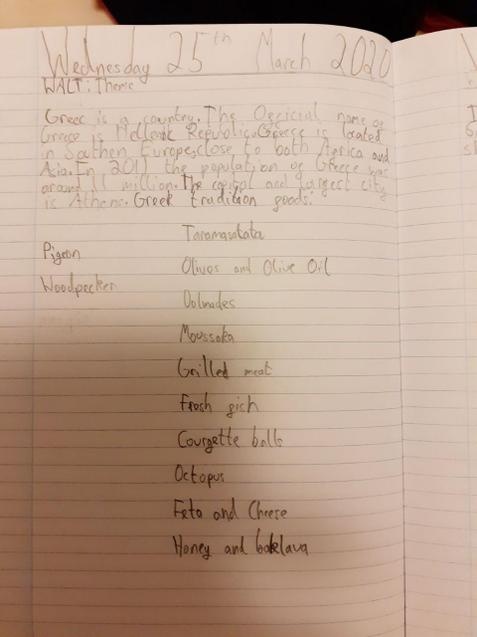 Wednesday 25th March 2020
WALT: Theme
Greec is a country. The Oegicial name og
Greece is Hellenik Republic. Greece is located
in Southen Europe, close to both Africa and
Asia. In 2011 the population og Greece was
around 11 million. The capital and largest city
is Athens. Greek tradition goods:
Taramasalata
Pigeon
Olives and Olive Oil
Woodpecker
Dolmades
Moussaka
Grilled meat
Fresh gish
Courgette balls
Octopus
Feta and Cheese
Honey and baklava